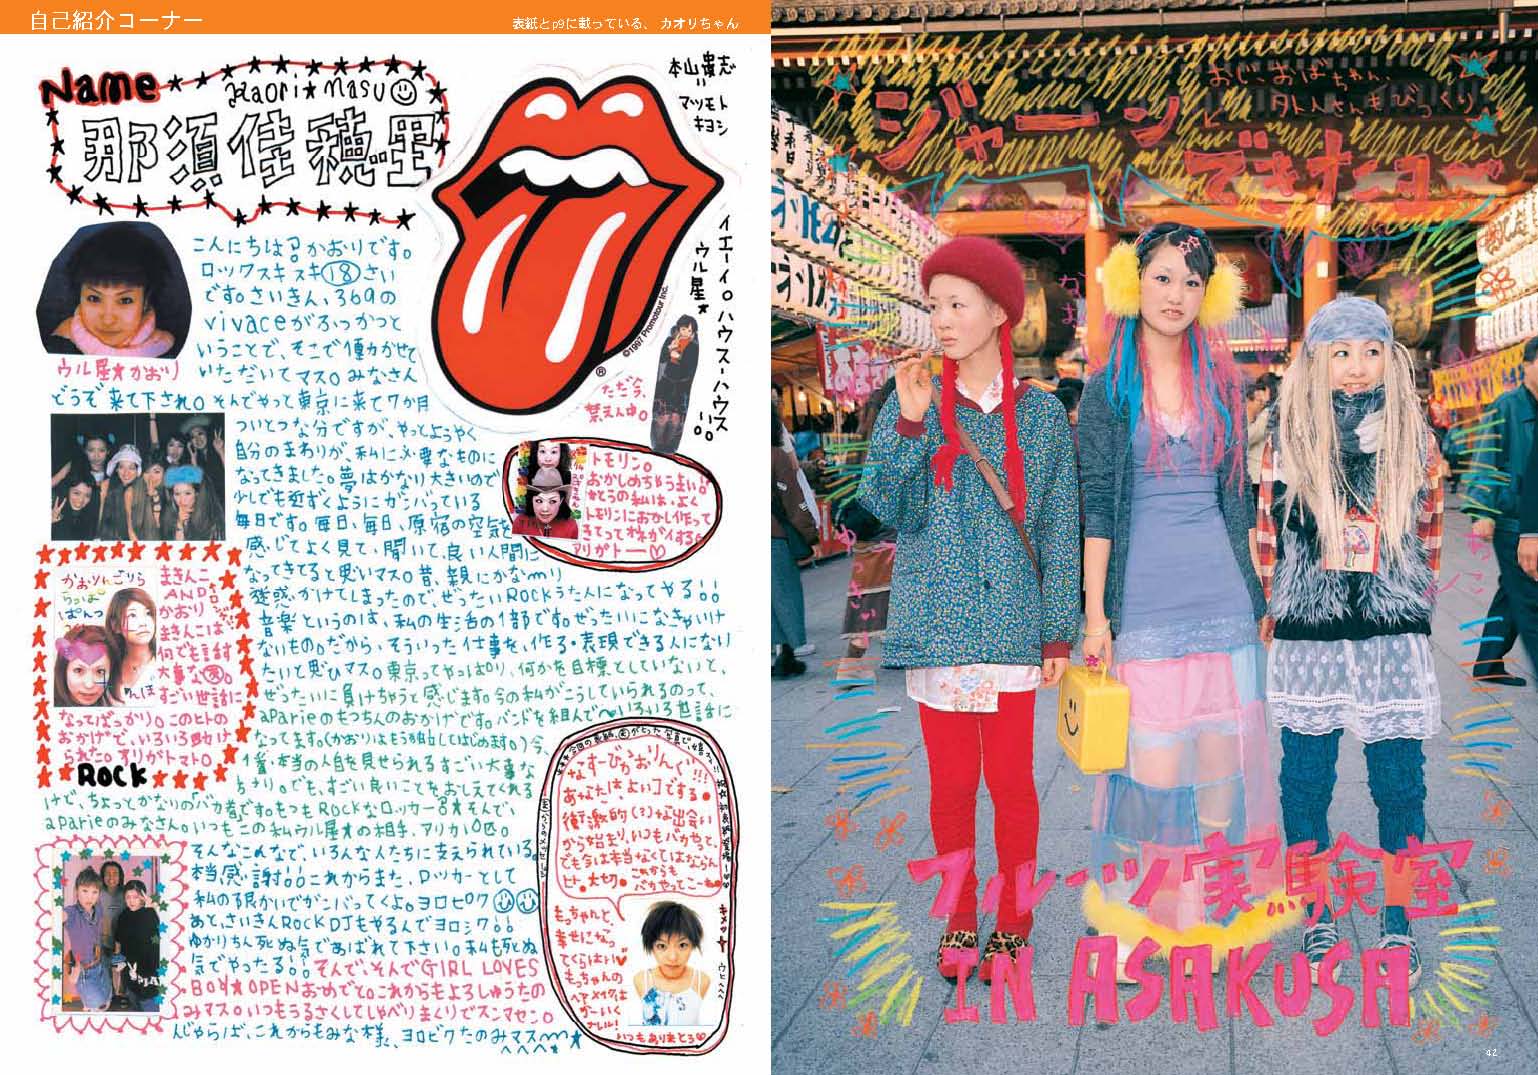 自己紹介コーナー
表紙とp9に載っている、カオリちゃん
Name
Kaori★Nasu
那須佳穂里
本山貴志
マツモト
キヨシ
イエーイ。ハウス-ハウス
ウル星★
©1997 Promotour Inc.
®
ただ今、
禁えん中。
ウル星★かおり
こんにちは!!かおりです。
ロックスキスキ18さい
です。さいきん、369の
vivaceがふっかつと
いうことで、そこで働かせて
いただいてマス。みなさん
どうぞ来て下され。そんでやって東京に来て7か月
ついとつな分ですが、やっとようやく
自分のまわりが、私に必要なものに
なってきました。夢はかなり大きいので
少しでも近ずくようにガンバっている
毎日です。毎日、毎日、原宿の空気を
感じてよく見て、聞いて、良い人間に
なってきてると思いマス。昔、親にかなり
迷惑かけてしまったのでぜったいROCKうた人になってやる!!
音楽というのは、私の生活の1部です。ぜったいになきゃいけ
ないもの。だから、そういった仕事を、作る・表現できる人になり
たいと思いマス。東京ってやっぱり、何かを目標としていないと、
ぜったいに負けちゃうと感じます。今の私がこうしていられるのって、
aparieのもっちんのおかげです。バンドを組んでいろいろ世話に
なってます。(かおりはもう独立してはじめます。)今、
1番、本当の人自を見せられるすごい大事な
でも、すごい良いことをおしえてくれる
けど、ちょっとかなりのバカ者です。もっもっROCKなロッカー!!★そんで、
aparieのみなさん。いつもこの私ウル星★の相手、アリガトO匹。
そんなこんなで、いろんな人たちに支えられている。
本当、感謝!!これからまた、ロッカーとして
私の限かいでがンバってくよ。ヨロピク
あと、さいきんROCK DJもやるんでヨロシク!!
ゆかりちん死ぬ気であばれて下さい。私も死ぬ
気でやったる!!そんで、そんでGIRL LOVES
BOY★OPENおめでと。これからもよろしゅうたの
みマス。いつもうるさくしてしゃべりまくりでスンマセン。
んじゃらば、これからもみな様、ヨロピクたのみマス
トモリン。
おかしめちゃうまい!!
きょうの私は、よく
トモリンにおかし作って
きてってオネガイする
アリがトー♡
かおりんごりら
らっぱ
ぱんつ
まきんこ
AND
かおり
まきんこは
何でも話す
大事な友。
すごい世話に
なってばっかり。このヒトの
おかげで、いろいろ助け
られた。アリがトマト。
ROCK
なすーびかおりんぐ!!!
あなたは、よいコでする●
衝激的(?)な出会い
から始まり、いつもバカやって、
でも今は本当なくてはならん
ヒト。大切。これからも
バカやってこー
もっちゃんと、
幸せになっ
てくらはい♥
もっちゃんの
ヘアメイクは
かーいく
なレル!
いつもありまとう♡
キメッ
ウヒヘヘヘ
おじ、おばちゃん、
外人さんもびっくり
ジャーン
できたヨー
なお
ゆっさい
あっこ
フルーツ実験室
IN ASAKUSA
42